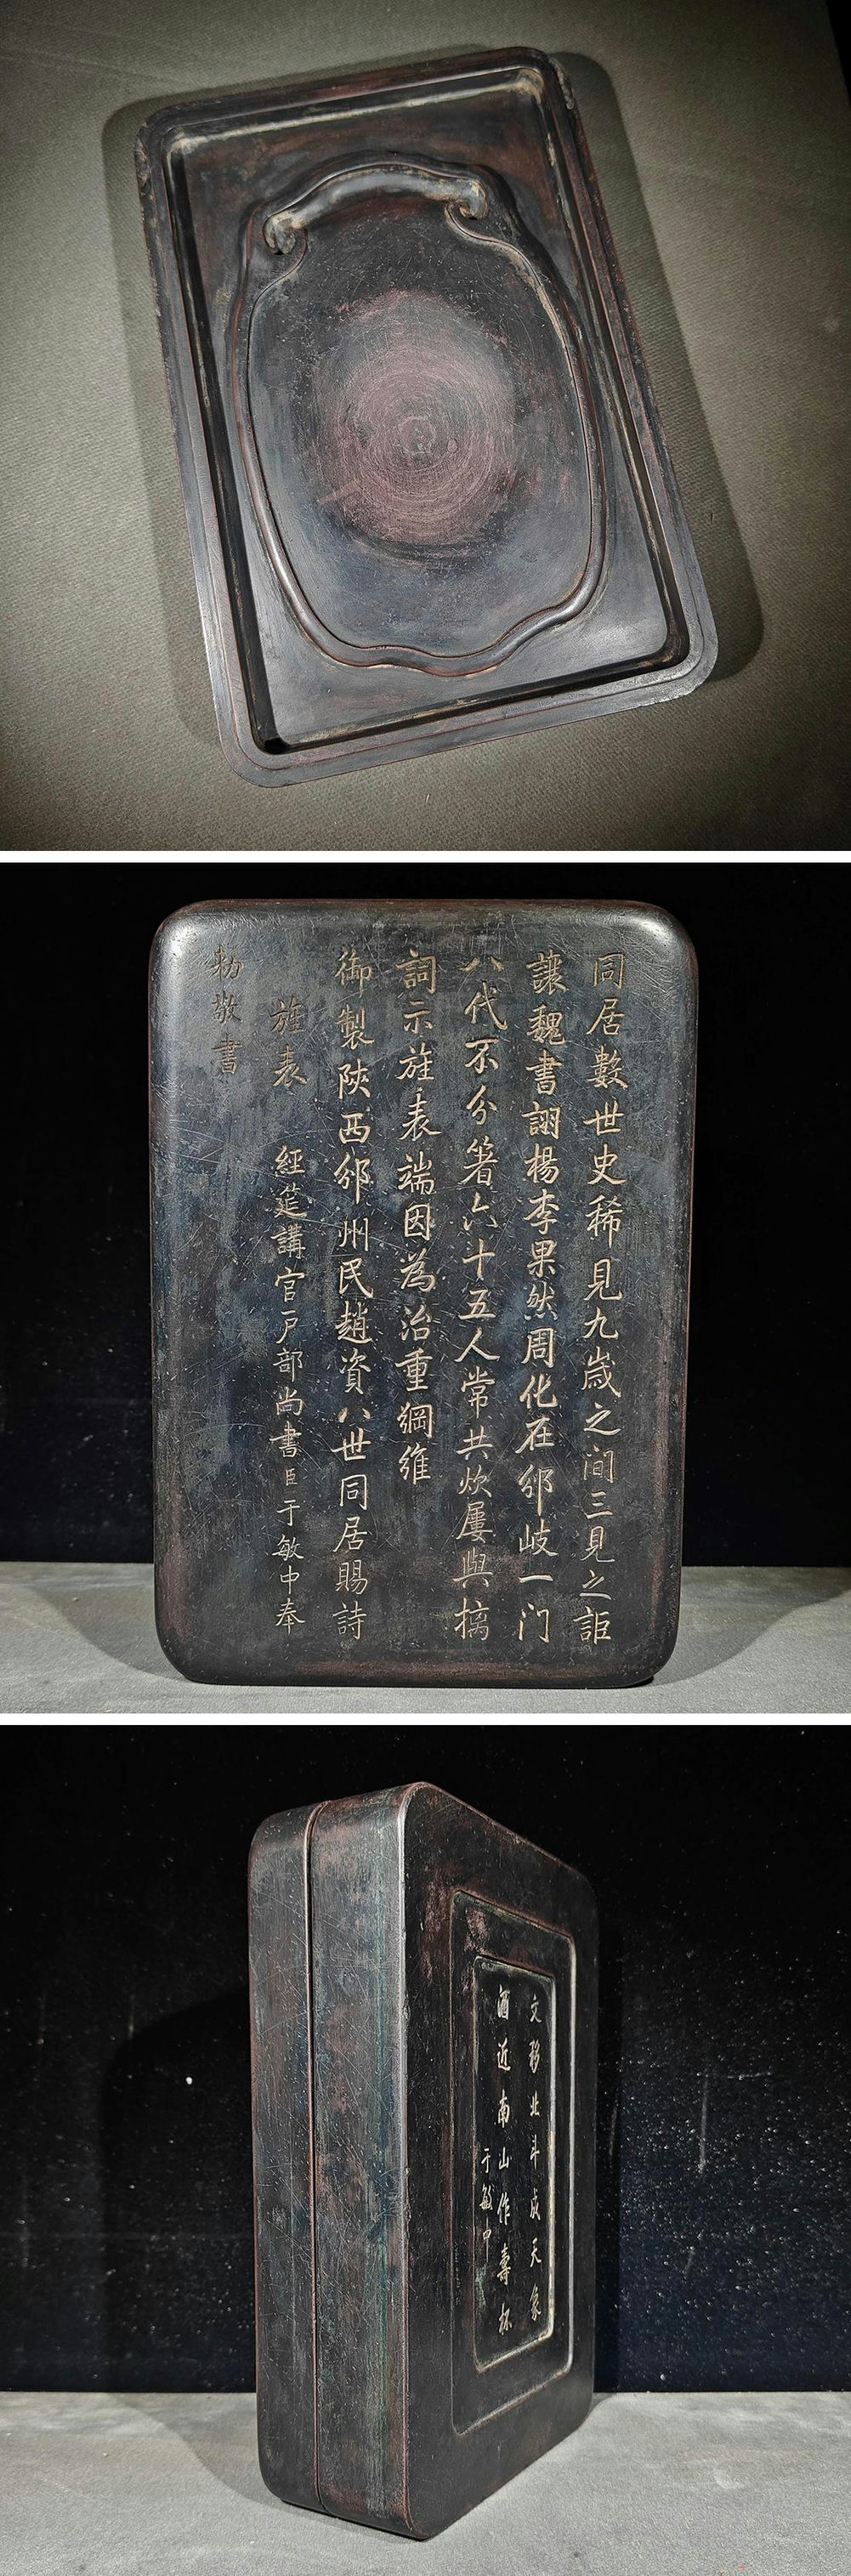 同居數世史稀見九歲之間三見之詎
讓魏書詡楊李果然周化在邠岐一门
八代不分箸六十五人常共炊屢與摛
詞示旌表端因為治重綱維
御製陝西邠州民趙資八世同居賜詩
旌表 經筵講官戶部尚書臣于敏中奉
勅敬書
文移北斗成天象
酒近南山作壽杯
于敏中